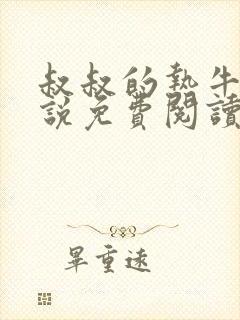 叔叔的執牛
說免費閱讀
畢重遠